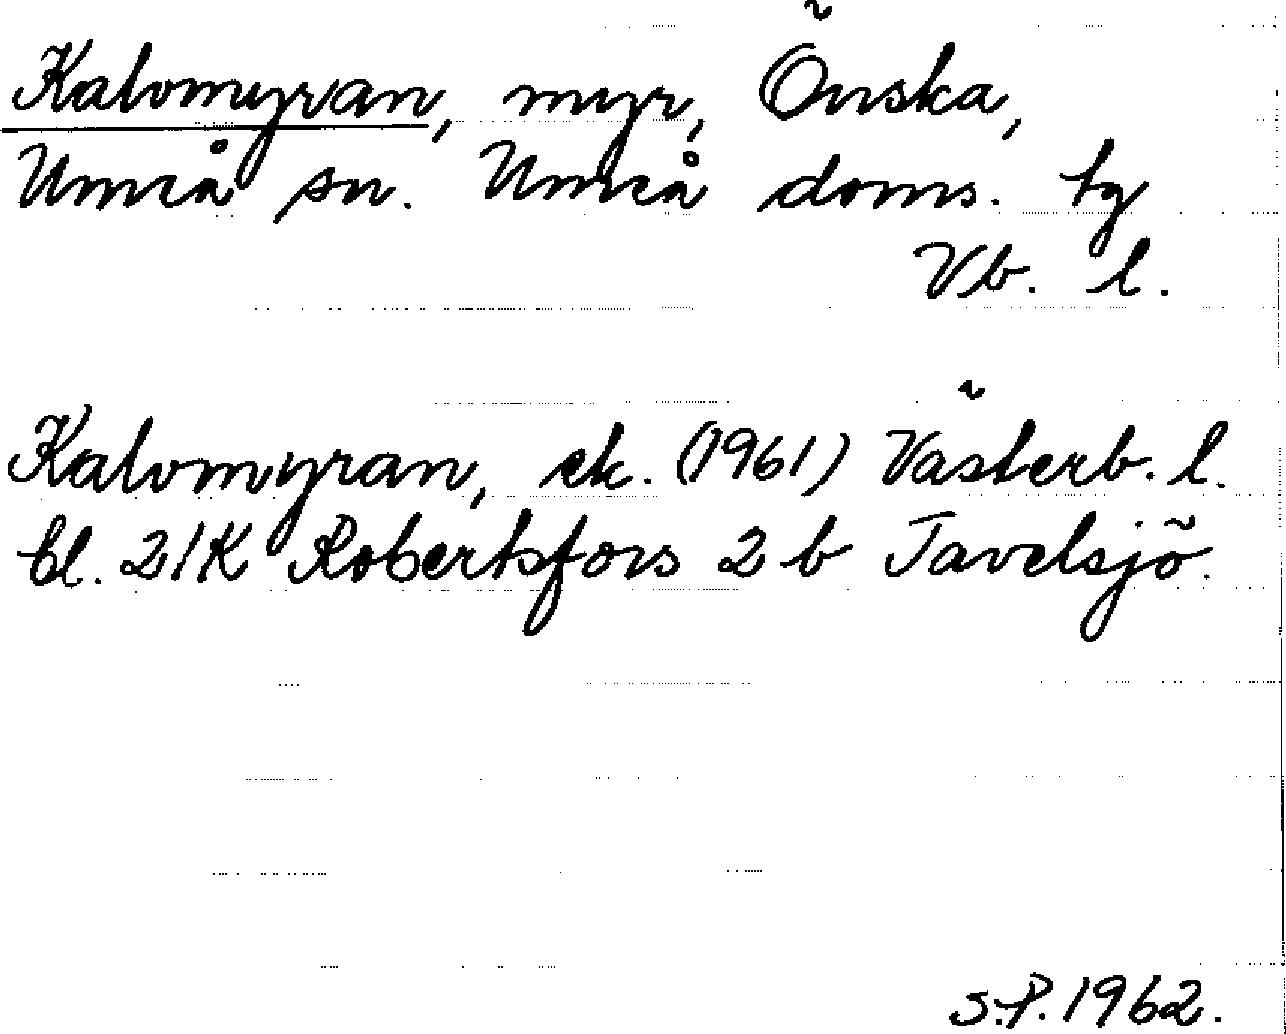 Kalvmyran, myr, Önska,
Umeå sn. Umeå doms. tg
Vb. l.
Kalvmyran, ek. (1961) Västerb. l.
bl. 21K Robertsfors 2b Tavelsjö.
S.P. 1962.